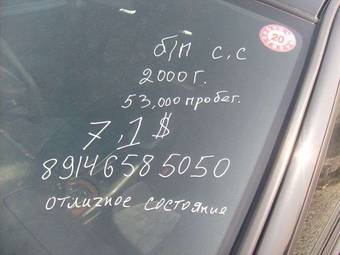 20
б/п с,с
2000 г.
53,000 пробег.
7,1 $
89146585050
отличное состояние